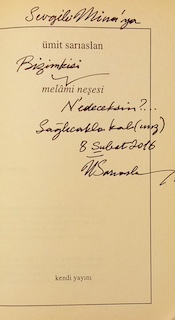 Sevgili Mina'ya
ümit sarıaslan
Bizimkisi
melâmi neşesi
Nedeceksin?...
Sağlıcakla kal (ınız)
8 Şubat 2016
kendi yayını